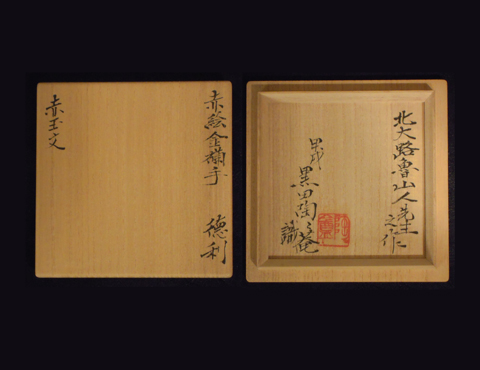 赤絵金襴手 徳利
赤玉文
北大路魯山人先生
之作
黒田陶々庵
識